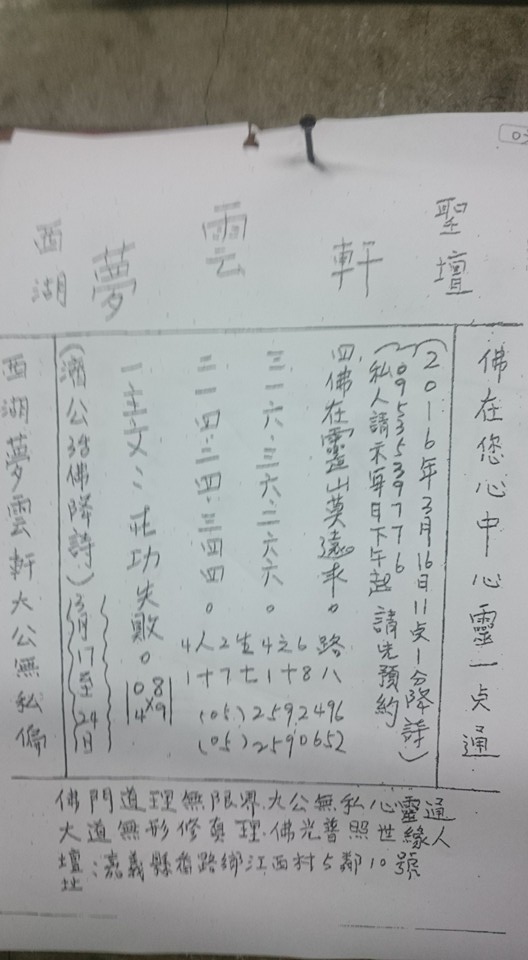 03
西湖夢雲軒聖壇
佛在您心中心靈一点通
(2016年3月16日11点1分降詩)
0953539776
(私人請示每日下午起 請先預約
四佛在靈山莫遠求。
三一六六.三六二六六。
二一四.三四.三四四。
一主文::壯功失敗。
4人2生4之6路
1十7七1十8八
(05)2592496
(05)2590652
08
×
49
(濟公活佛降詩)3月17至24日
西湖夢雲軒大公無私偏
佛門道理無限界大公無私心靈通
大道無形修真理.佛光普照世緣人
壇址:嘉義縣番路鄉江西村5鄰10號